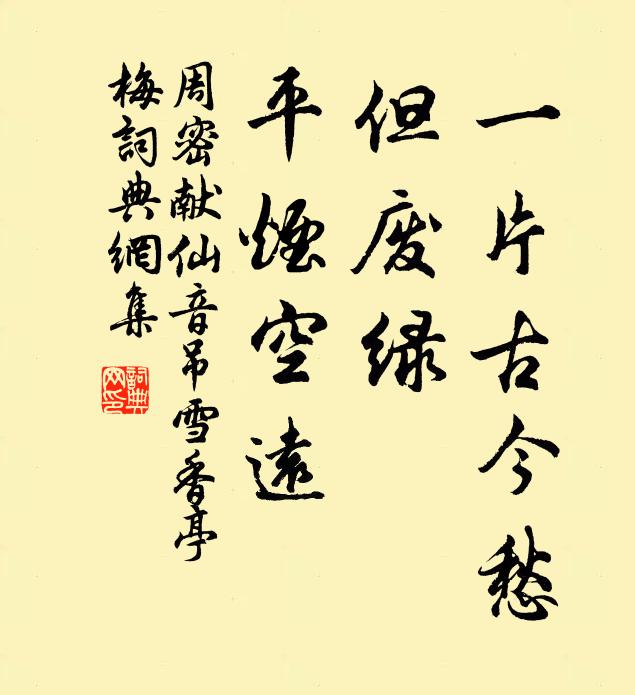 一片古今愁
但废绿
平煙空遠
周密献仙音吊雪香亭
梅詞典網集
詞典
网印